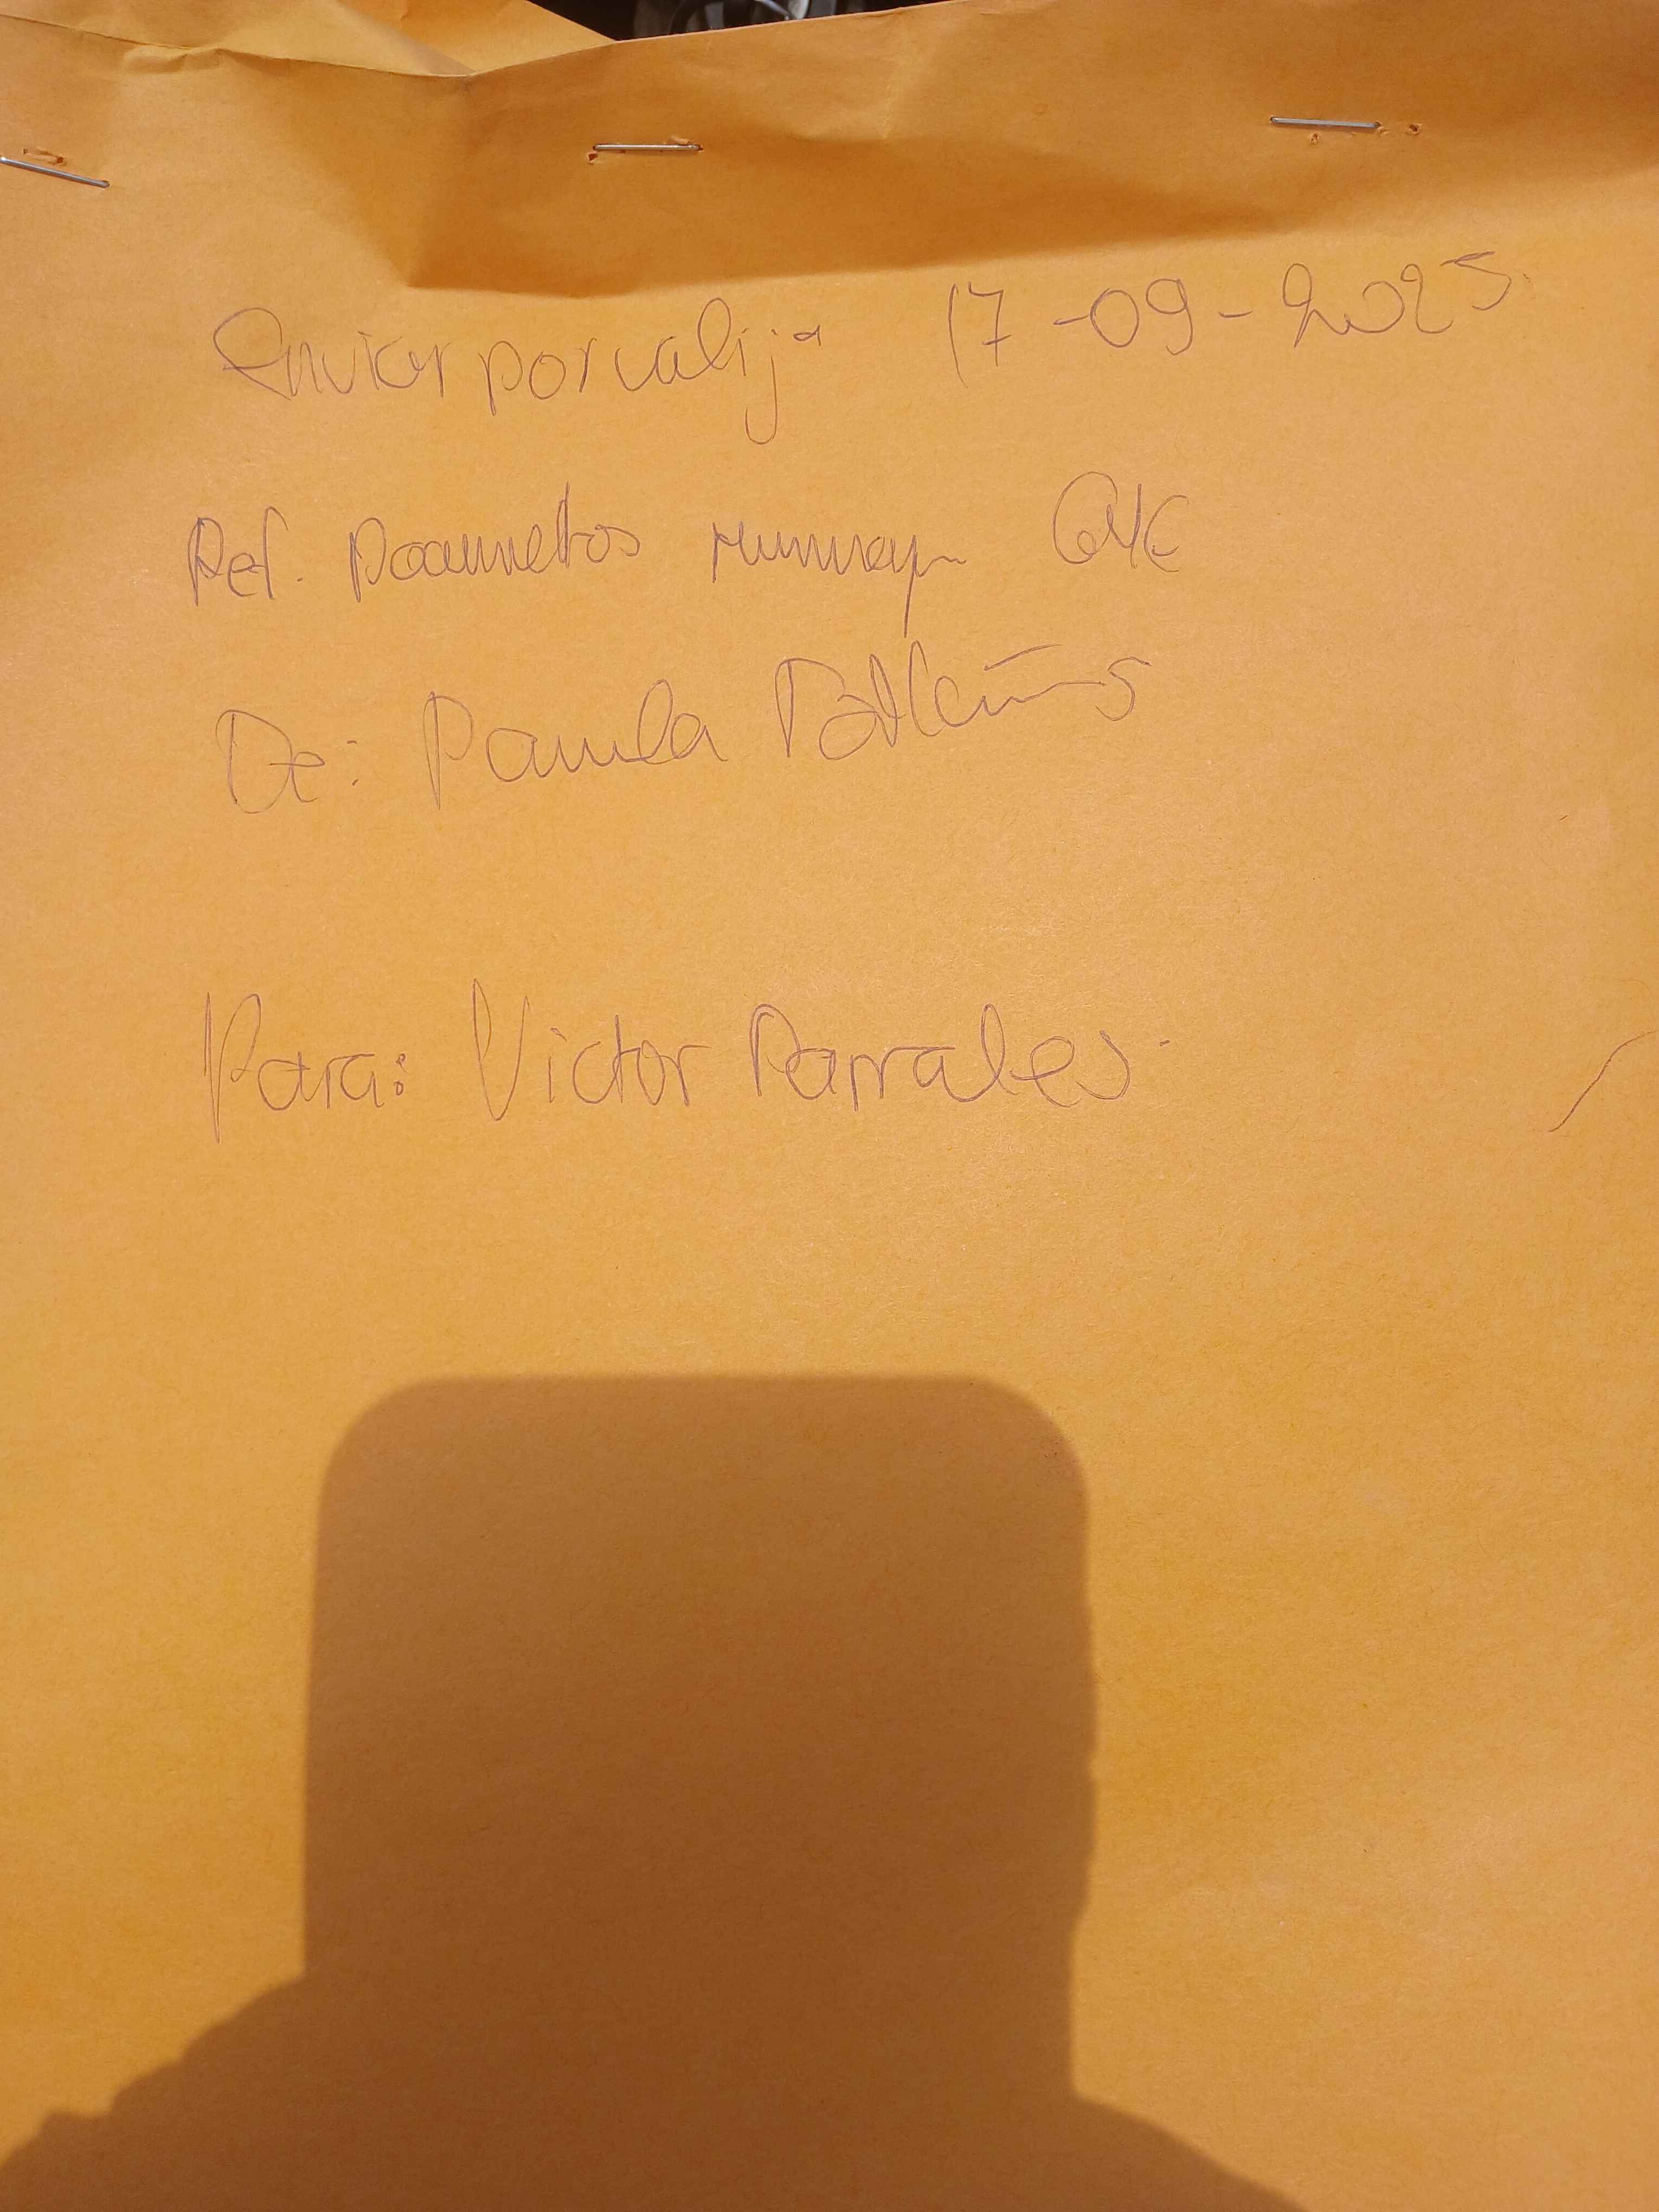 Enviar por valija 17-09-2025.
Ref. Documetos GYE
De: Pamela
Para: Victor Parrales.